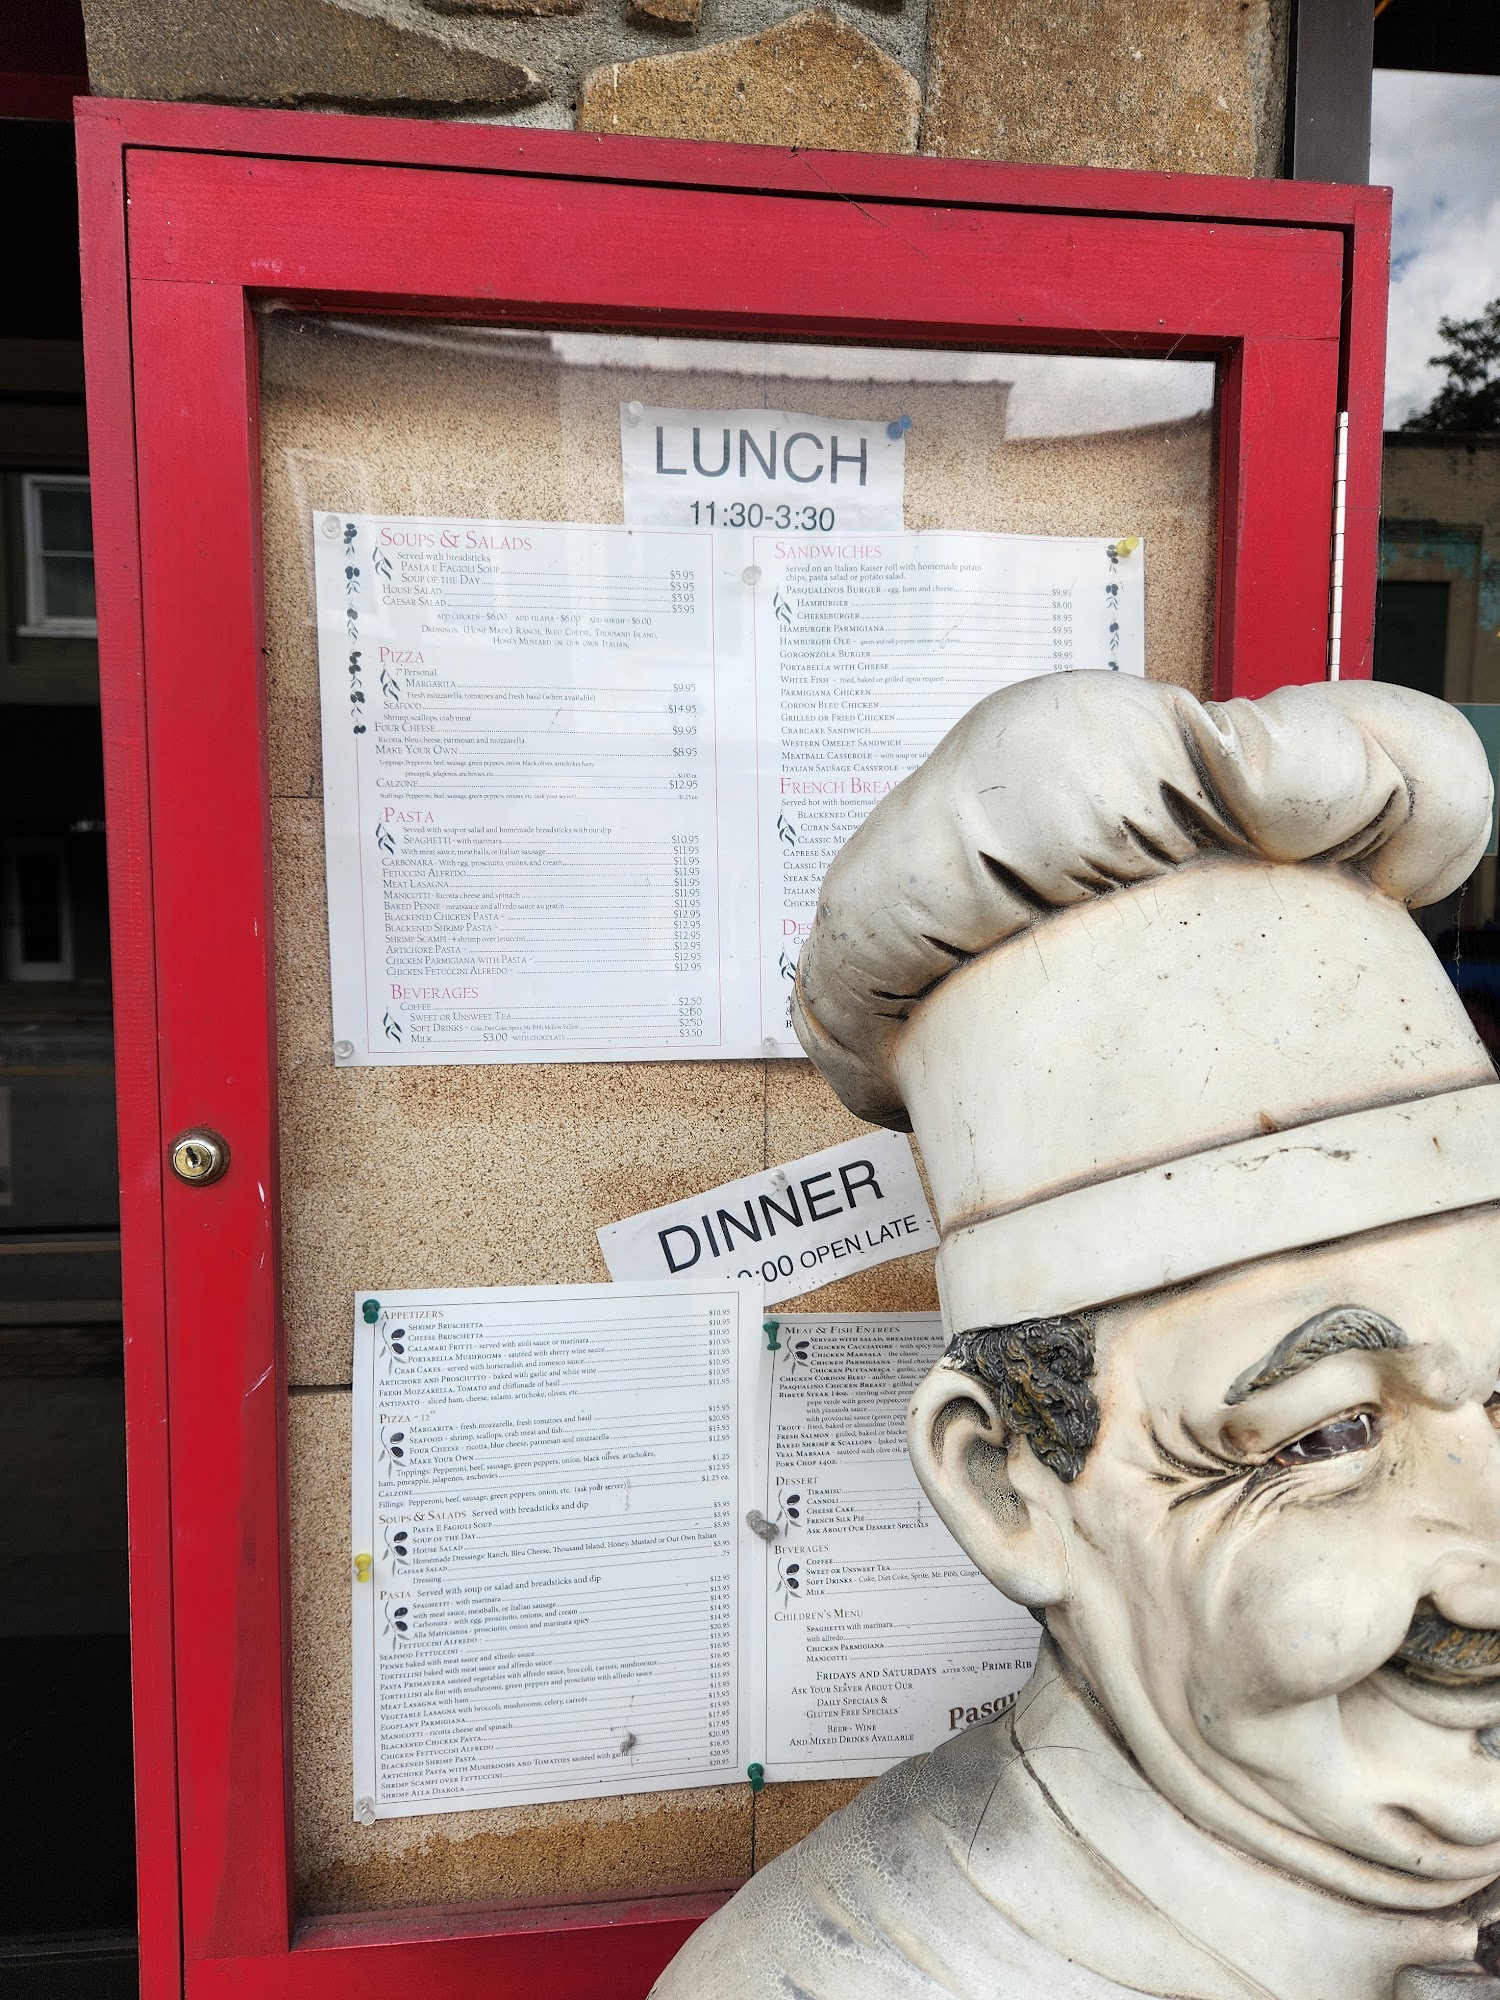 LUNCH
11:30-3:30
SOUPS & SALADS
Served with breadsticks
PASTA E FAGIOLI SOUP $5.95
SOUP OF THE DAY $5.95
HOUSE SALAD $5.95
CAESAR SALAD $5.95
ADD CHICKEN - $6.00 ADD TILAPIA - $6.00 ADD SHRIMP - $6.00
DRESSINGS: (HOME MADE) RANCH, BLEU CHEESE, THOUSAND ISLAND,
HONEY MUSTARD OR OUR OWN ITALIAN,
PIZZA
7" Personal
MARGARITA $9.95
Fresh mozzarella, tomatoes and fresh basil (when available)
SEAFOOD $14.95
Shrimp, scallops, crab meat
FOUR CHEESE $9.95
Ricotta, bleu cheese, parmesan and mozzarella
MAKE YOUR OWN $8.95
Toppings: Pepperoni, beef, sausage, green peppers, onion, black olives, artichokes, ham,
pineapple, jalapenos, anchovies, etc $1.00 ea
CALZONE $12.95
Stuffings: Pepperoni, beef, sausage, green peppers, onions, etc. (ask your server) $1.25 ea
PASTA
Served with soup or salad and homemade breadsticks with our dip
SPAGHETTI - with marinara $10.95
With meat sauce, meatballs, or Italian sausage $11.95
CARBONARA - With egg, prosciutto, onions, and cream $11.95
FETUCCINI ALFREDO $11.95
MEAT LASAGNA $11.95
MANICOTTI - Ricotta cheese and spinach $11.95
BAKED PENNE - meatsauce and alfredo sauce au gratin $11.95
BLACKENED CHICKEN PASTA - $12.95
BLACKENED SHRIMP PASTA - $12.95
SHRIMP SCAMPI - 4 shrimp over fetuccini $12.95
ARTICHOKE PASTA - $12.95
CHICKEN PARMIGIANA WITH PASTA - $12.95
CHICKEN FETUCCINI ALFREDO - $12.95
BEVERAGES
COFFEE $2.50
SWEET OR UNSWEET TEA $2.50
SOFT DRINKS - Coke, Diet Coke, Sprite, Mr. Pibb, Mellow Yellow $2.50
MILK $3.00 WITH CHOCOLATE $3.50
SANDWICHES
Served on an Italian Kaiser roll with homemade potato
chips, pasta salad or potato salad.
PASQUALINOS BURGER - egg, ham and cheese $9.95
HAMBURGER $8.00
CHEESEBURGER $8.95
HAMBURGER PARMIGIANA $9.95
HAMBURGER OLE - green and red peppers, onions and cheese $9.95
GORGONZOLA BURGER $9.95
PORTABELLA WITH CHEESE $9.95
WHITE FISH - fried, baked or grilled upon request
PARMIGIANA CHICKEN
CORDON BLEU CHICKEN
GRILLED OR FRIED CHICKEN
CRABCAKE SANDWICH
WESTERN OMELET SANDWICH
MEATBALL CASSEROLE - with soup or
ITALIAN SAUSAGE CASSEROLE -
FRENCH
Served hot with homemade
BLACKENED
CUBAN
CLASSIC
CAPRESE
CLASSIC
STEAK
ITALIAN
DINNER
OPEN LATE -
APPETIZERS
SHRIMP BRUSCHETTA $10.95
CHEESE BRUSCHETTA $10.95
CALAMARI FRITTI - served with aioli sauce or marinara $10.95
PORTABELLA MUSHROOMS - sautéed with sherry wine sauce $10.95
CRAB CAKES - served with horseradish and romesco sauce $11.95
ARTICHOKE AND PROSCIUTTO - baked with garlic and white wine $10.95
FRESH MOZZARELLA, TOMATO and chiffonade of basil $10.95
ANTIPASTO - sliced ham, cheese, salami, artichoke, olives, etc $11.95
PIZZA - 12"
MARGARITA - fresh mozzarella, fresh tomatoes and basil $15.95
SEAFOOD - shrimp, scallops, crab meat and fish $20.95
FOUR CHEESE - ricotta, blue cheese, parmesan and mozzarella $15.95
MAKE YOUR OWN $12.95
Toppings: Pepperoni, beef, sausage, green peppers, onion, black olives, artichokes,
ham, pineapple, jalapenos, anchovies $1.25
CALZONE $12.95
Fillings: Pepperoni, beef, sausage, green peppers, onion, etc. (ask your server) $1.25 ea.
SOUPS & SALADS Served with breadsticks and dip
PASTA E FAGIOLI SOUP $5.95
SOUP OF THE DAY $5.95
HOUSE SALAD $5.95
Homemade Dressings: Ranch, Bleu Cheese, Thousand Island, Honey, Mustard or Our Own Italian
CAESAR SALAD $5.95
Dressing .75
PASTA Served with soup or salad and breadsticks and dip
SPAGHETTI - with marinara $12.95
with meat sauce, meatballs, or Italian sausage $13.95
Carbonara - with egg, prosciutto, onions, and cream $14.95
Alla Matricianna - prosciutto, onion and marinara spicy $14.95
FETTUCCINI ALFREDO - $14.95
SEAFOOD FETTUCCINI - $20.95
PENNE baked with meat sauce and alfredo sauce $15.95
TORTELLINI baked with meat sauce and alfredo sauce $16.95
PASTA PRIMAVERA sautéed vegetables with alfredo sauce, broccoli, carrots, mushrooms $16.95
TORTELLINI ala fini with mushrooms, green peppers and prosciutto with alfredo sauce $16.95
MEAT LASAGNA with ham $15.95
VEGETABLE LASAGNA with broccoli, mushrooms, celery, carrots $15.95
EGGPLANT PARMIGIANA $15.95
MANICOTTI - ricotta cheese and spinach $15.95
BLACKENED CHICKEN PASTA $17.95
CHICKEN FETTUCCINI ALFREDO $17.95
BLACKENED SHRIMP PASTA $20.95
ARTICHOKE PASTA WITH MUSHROOMS AND TOMATOES sautéed with garlic $16.95
SHRIMP SCAMPI OVER FETTUCCINI $20.95
SHRIMP ALLA DIABOLA $20.95
MEAT & FISH ENTREES
SERVED WITH SALAD, BREADSTICK AND
CHICKEN CACCIATORE - with spicy
CHICKEN MARSALA - the classic
CHICKEN PARMIGIANA - fried chicken
CHICKEN PUTTANESCA - garlic,
CHICKEN CORDON BLEU - another classic
PASQUALINO CHICKEN BREAST - grilled
RIBEYE STEAK 14OZ. - sterling silver
pepe verde with green peppercorn
with pizzaiola sauce
with provincial sauce (green
TROUT - fried, baked or almandine (fresh
FRESH SALMON - grilled, baked or
BAKED SHRIMP & SCALLOPS - baked
VEAL MARSALA - sautéed with olive oil,
PORK CHOP 14OZ. -
DESSERT
TIRAMISU
CANNOLI
CHEESE CAKE
FRENCH SILK PIE
ASK ABOUT OUR DESSERT SPECIALS
BEVERAGES
COFFEE
SWEET OR UNSWEET TEA
SOFT DRINKS - Coke, Diet Coke, Sprite, Mr. Pibb, Ginger
MILK
CHILDREN'S MENU
SPAGHETTI with marinara
with alfredo
CHICKEN PARMIGIANA
MANICOTTI
FRIDAYS AND SATURDAYS AFTER 5:00 - PRIME RIB
ASK YOUR SERVER ABOUT OUR
DAILY SPECIALS &
GLUTEN FREE SPECIALS
BEER - WINE
AND MIXED DRINKS AVAILABLE